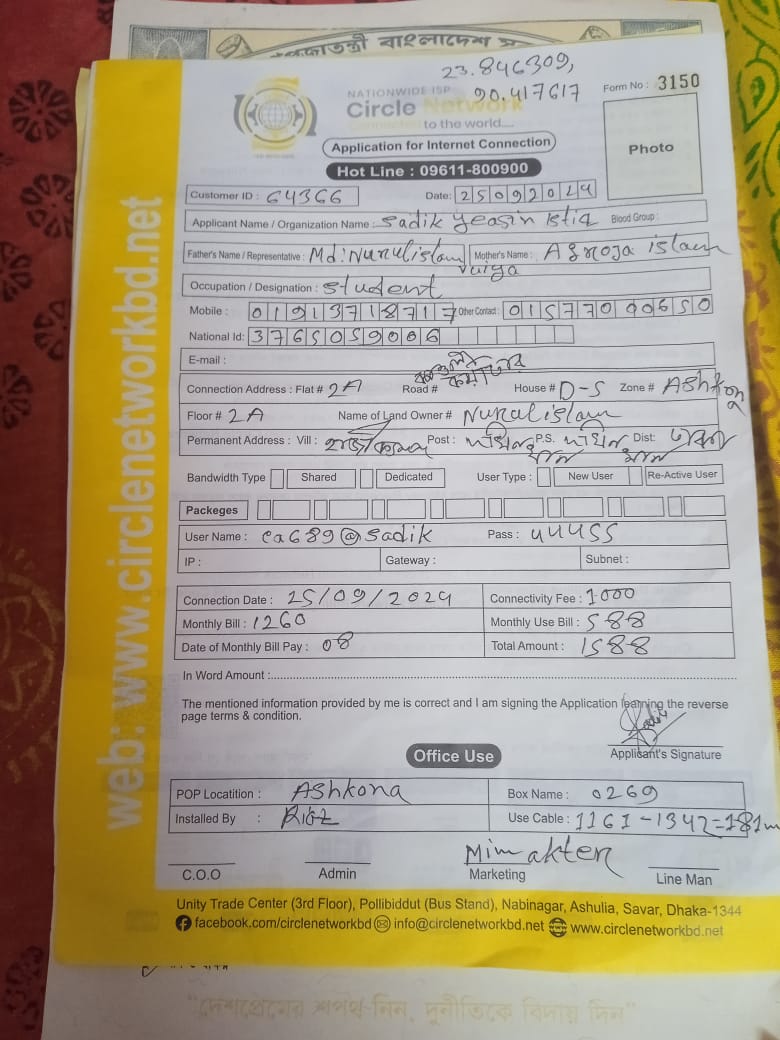 গণপ্রজাতন্ত্রী বাংলাদেশ
23.846309,
90.417617
Form No : 3150
NATIONWIDE ISP
Circle Network
to the world....
Photo
Application for Internet Connection
Hot Line : 09611-800900
Customer ID : 64366 Date: 25092024
Applicant Name / Organization Name : Sadik yeasin istiq Blood Group :
Father's Name / Representative : Md: Nurulislam Mother's Name : Afroja islam
Occupation / Designation : Student
Mobile : 01913718717 Other Contact : 01577090650
National Id: 3765059006
E-mail :
Connection Address : Flat # 2A Road # House # D-S Zone # Ashkona
Floor # 2A Name of Land Owner # Nurulislam
Permanent Address : Vill : Post : P.S. Dist:
Bandwidth Type Shared Dedicated User Type : New User Re-Active User
Packeges
User Name : ca689@sadik Pass : uuuss
IP : Gateway : Subnet :
Connection Date : 25/09/2024 Connectivity Fee : 1000
Monthly Bill : 1260 Monthly Use Bill : 588
Date of Monthly Bill Pay : 08 Total Amount : 1588
In Word Amount :
The mentioned information provided by me is correct and I am signing the Application learning the reverse
page terms & condition.
Applicant's Signature
Office Use
POP Locatition : Ashkona Box Name : 0269
Installed By : Use Cable : 1161-1342=181m
Mim akter
C.O.O Admin Marketing Line Man
Unity Trade Center (3rd Floor), Pollibiddut (Bus Stand), Nabinagar, Ashulia, Savar, Dhaka-1344
facebook.com/circlenetworkbd info@circlenetworkbd.net www.circlenetworkbd.net
web: www.circlenetworkbd.net
"দেশপ্রেমের শপথ নিন, দুর্নীতিকে বিদায় দিন"